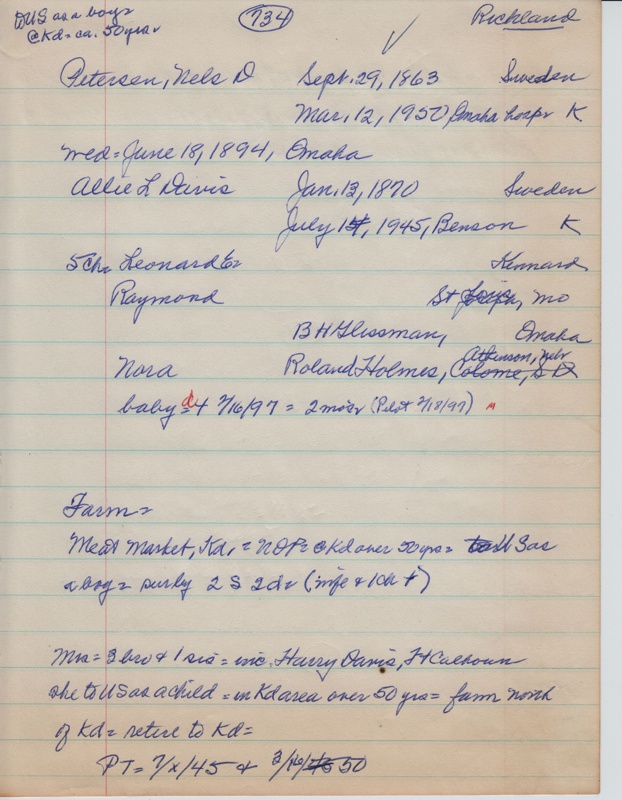 to US as a boy=
@Kd= ca. 50yrs.
734
Richland
Petersen, Nels D Sept. 29, 1863 Sweden
Mar. 12, 1950, Omaha hosp. K
wed= June 18, 1894, Omaha
Allie L Davis Jan. 13, 1870 Sweden
July 1, 1945, Benson K
5ch= Leonard E= Kennard
Raymond St Mo
B H Glissman, Omaha
Atkinson, Nebr
Nora Roland Holmes, Colome, S D
baby= d 4 7/16/97 = 2mo's (Pilot 7/18/97) M
Farm=
Meat Market, Kd, = NDP= @Kd over 50yrs= to US as
a boy= surby 2 S 2d= (wife & 1ch +)
Mrs= 3 bro & 1 sis= inc. Harry Davis, Ft Calhoun
she to US as a child= in Kd area over 50 yrs= farm north
of Kd= retire to Kd=
PT= 7/x/45 & 3/16/45 50